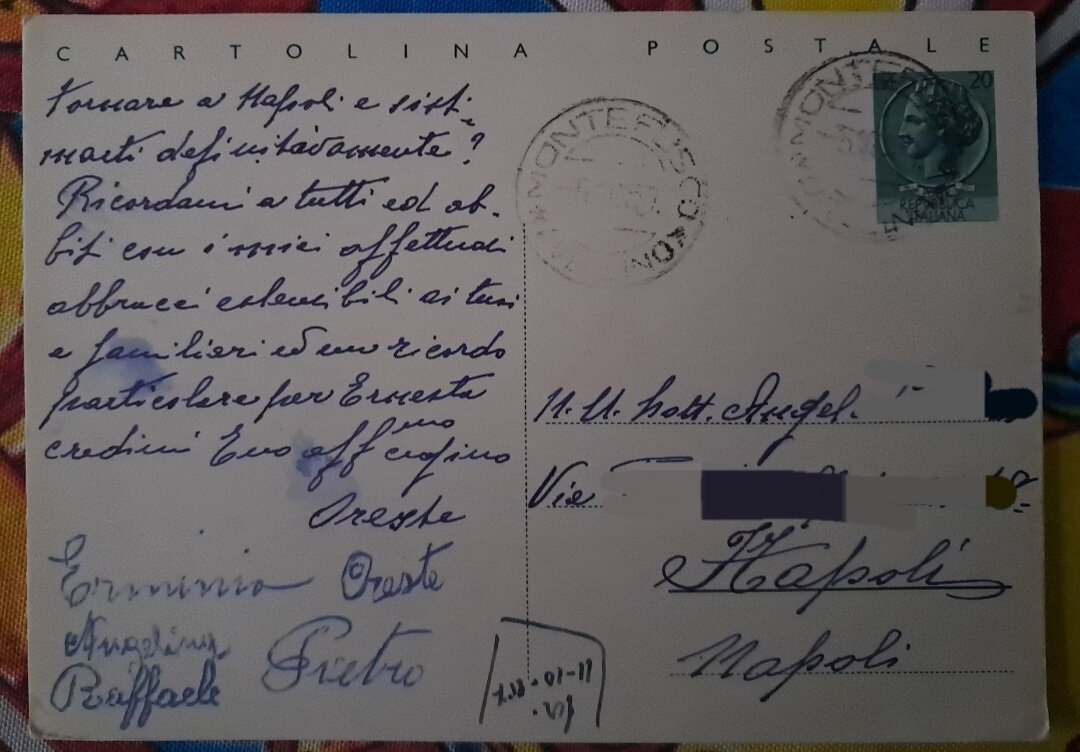 CARTOLINA POSTALE
Tornare a Napoli e siste-
marti definitivamente?
Ricordami a tutti ed ab-
biti con i miei affettuosi
abbracci estensibili ai tuoi
e familiari ed un ricordo
particolare per Ernesta
credimi tuo aff.mo cugino
Oreste
Erminia Oreste
Angelina
Raffaele Pietro
MONTEFUSCO
MONTE
20
REPUBBLICA
ITALIANA
Dott. Angel.
Via
Napoli
Napoli